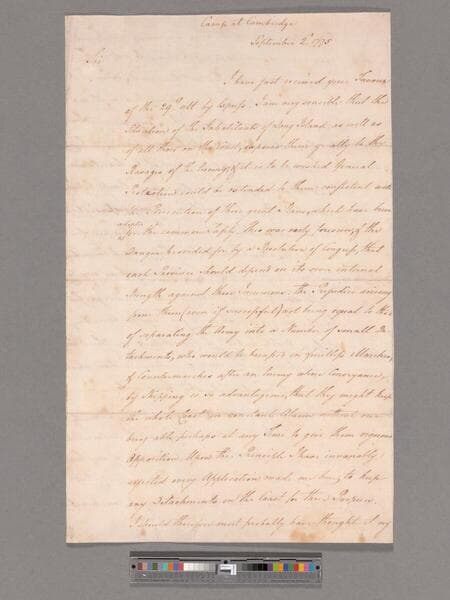 Camp at Cambridge
September 2d 1775
Sir
I have just received your Favour
of the 29th ult by Express. I am very sensible that the
Situation of the Inhabitants of Long Island as well as
of all those on the Coast, exposes them greatly to the
Ravages of the Enemy; & it is to be wished General
Protection could be extended to them consistent with
the Prosecution of those great Plans, which have been
adopted
for the common Safety. This was early foreseen, & the
Danger provided for by a Resolution of Congress, that
each Province should depend on its own internal
Strength against these Incursions: the Prejudice arising
from them (even if successful) not being equal to that
of separating the Army into a Number of small De-
tachments, who would be harass'd in fruitless Marches,
& Countermarches after an Enemy whose Conveyance
by Shipping is so advantageous, that they might keep
the whole Coast in constant Alarm without our
being able, perhaps at any Time to give them vigorous
Opposition. Upon this Principle I have invariably
rejected every Application made me here, to keep
any Detachments on the Coast for these Purposes.
I should therefore most probably have thought it my